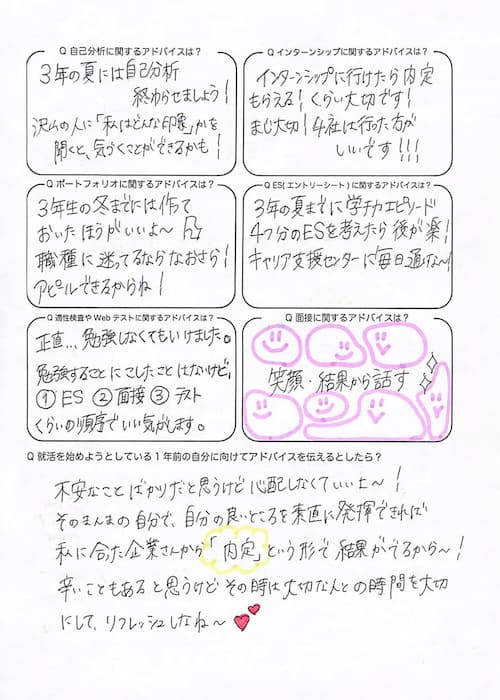 Q 自己分析に関するアドバイスは？
3年の夏には自己分析
終わらせましょう！
沢山の人に「私はどんな印象」かを
聞くと、気づくことができるかも！
Q インターンシップに関するアドバイスは？
インターンシップに行けたら内定
もらえる！くらい大切です！
まじ大切！4社は行った方が
いいです！！！
Q ポートフォリオに関するアドバイスは？
3年生の冬までには作って
おいたほうがいいよ〜
職種に迷ってるならなおさら！
アピールできるからね！
Q ES(エントリーシート)に関するアドバイスは？
3年の夏までに学チカエピソード
4つ分のESを考えたら後が楽！
キャリア支援センターに毎日通な〜！
Q 適性検査やWebテストに関するアドバイスは？
正直…勉強しなくてもいけました。
勉強することにこしたことはないけど、
① ES ② 面接 ③ テスト
くらいの順序でいい気がします。
Q 面接に関するアドバイスは？
笑顔・結果から話す
Q 就活を始めようとしている1年前の自分に向けてアドバイスを伝えるとしたら？
不安なことばかりだと思うけど心配しなくていいよ〜！
そのまんまの自分で、自分の良いところを素直に発揮できれば
私に合った企業さんから「内定」という形で結果がでるから〜！
辛いこともあると思うけどその時は大切な人との時間を大切
にして、リフレッシュしな〜